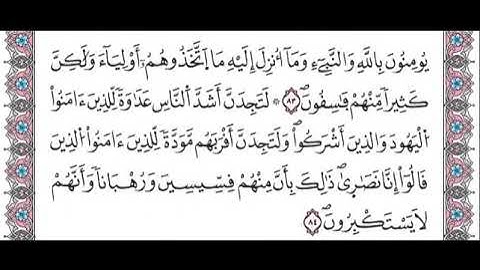 يُومِنُونَ بِاللَّهِ وَالنَّبِيٓءِ وَمَآ أُنزِلَ إِلَيْهِ مَا اَتَّخَذُوهُمُۥٓ أَوْلِيَآءَ وَلَٰكِنَّ
كَثِيراٗ مِّنْهُمْ فَٰسِقُونَۖ ٨٣ ۞ لَتَجِدَنَّ أَشَدَّ اَلنَّاسِ عَدَٰوَةٗ لِّلذِينَ ءَامَنُواْ
اَلْيَهُودَ وَالذِينَ أَشْرَكُواْۖ وَلَتَجِدَنَّ أَقْرَبَهُم مَّوَدَّةٗ لِّلذِينَ ءَامَنُواْ اَلذِينَ
قَالُوٓاْ إِنَّا نَصَٰر۪يٰۖ ذَٰلِكَ بِأَنَّ مِنْهُمْ قِسِّيسِينَ وَرُهْبَاناٗ وَأَنَّهُمْ
لَا يَسْتَكْبِرُونَۖ ٨٤